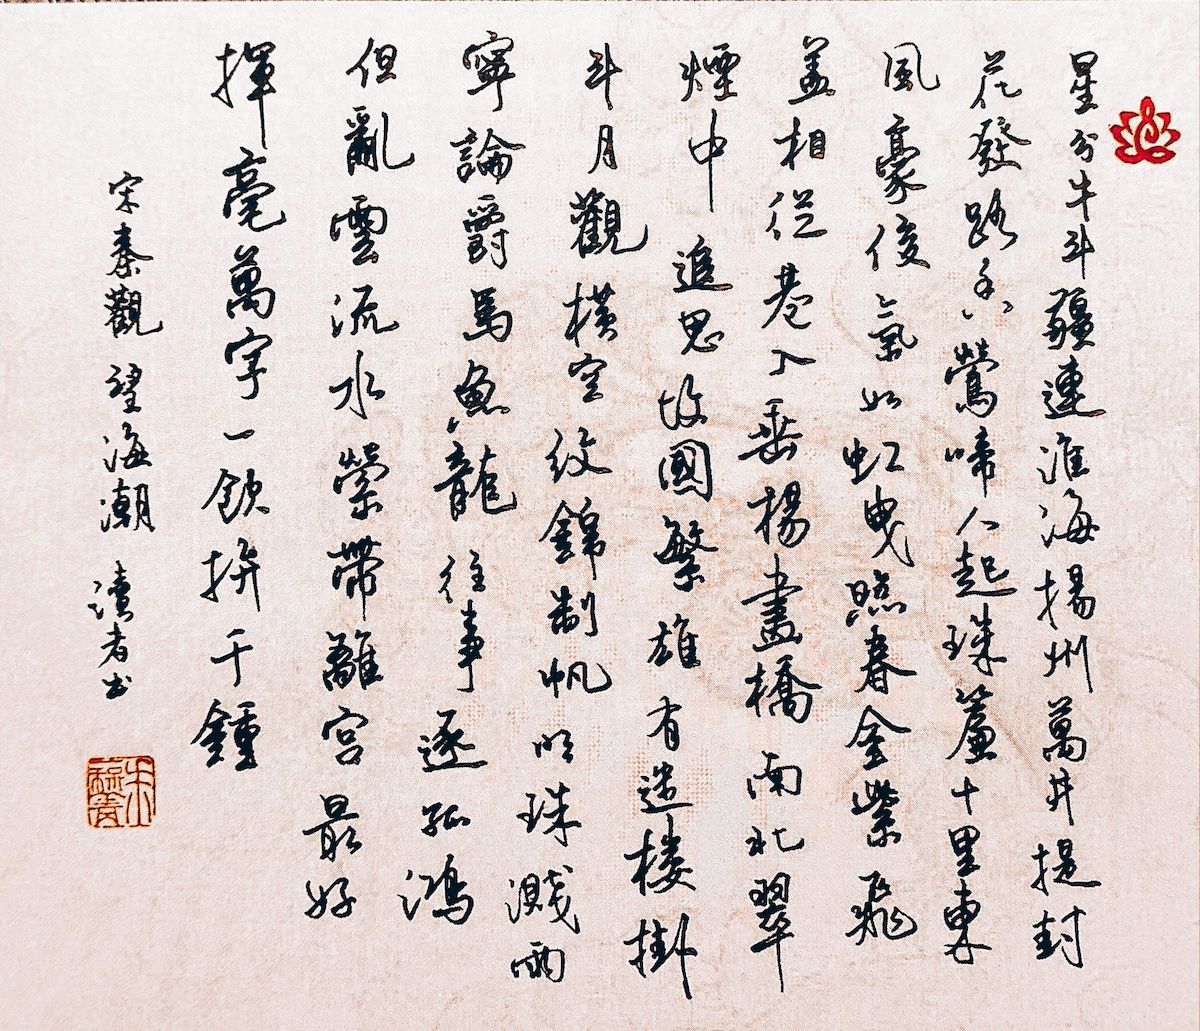 星分牛斗疆連淮海揚州萬井提封
花發路香鶯啼人起珠簾十里東
風豪俊氣如虹曳照春金紫飛
盖相從巷入垂楊畫橋南北翠
煙中追思故國繁雄有迷樓掛
斗月觀橫空紋錦制帆明珠濺雨
寧論爵馬魚龍往事逐孤鴻
但亂雲流水縈帶離宮最好
揮毫萬字一飲拚千鍾
宋秦觀望海潮讀者书